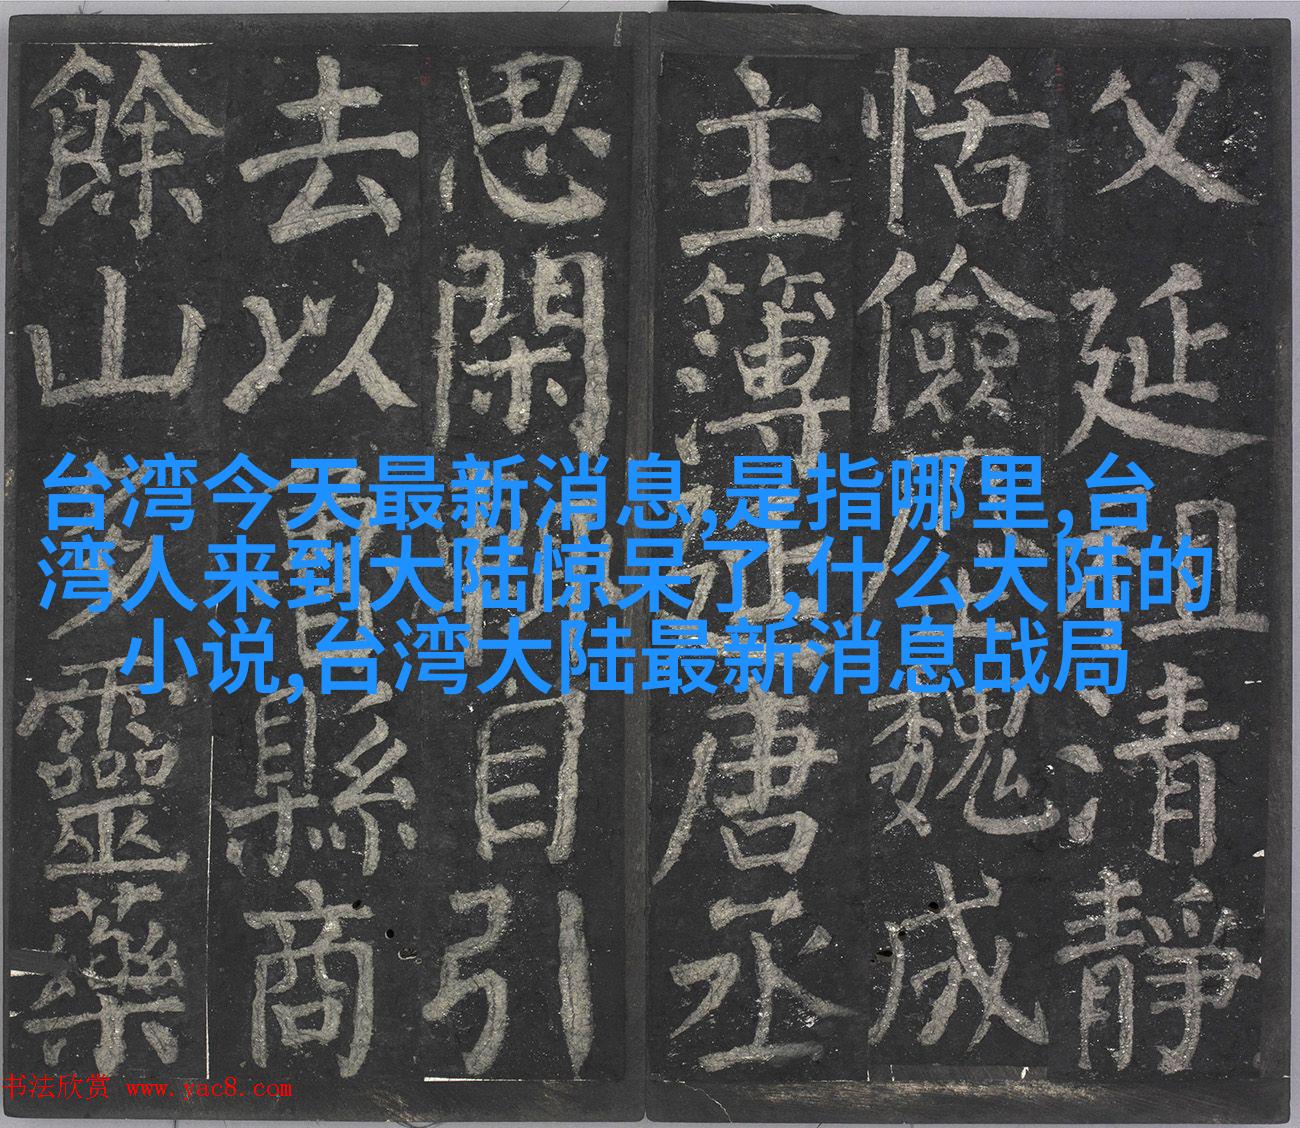 父延清靜
恬儉魏成
主簿唐丞
思閑目引
去以縣商
餘山靈藥
台湾今天最新消息,是指哪里,台
湾人来到大陆惊呆了,什么大陆的
小说,台湾大陆最新消息战局
书法欣赏 www.yac8.com